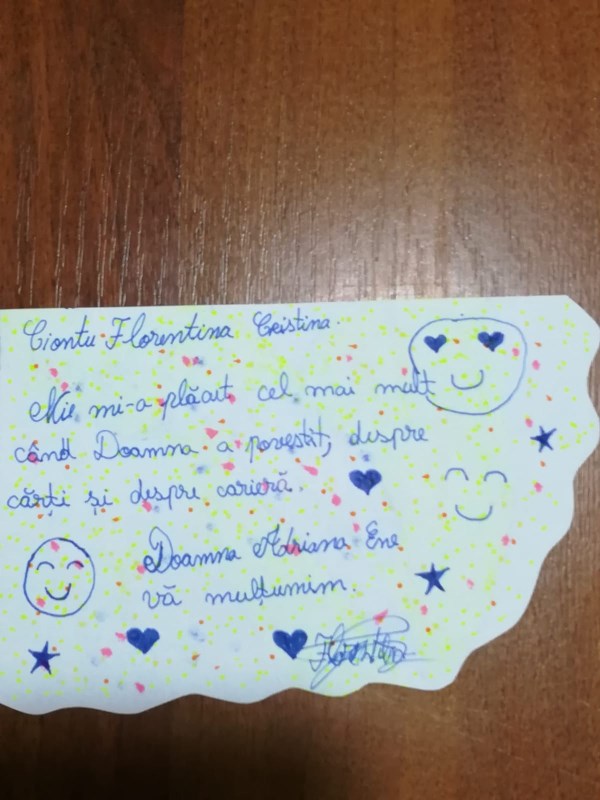 Ciontu Florentina Cristina.
Mie mi-a plăcut cel mai mult
când Doamna a povestit, despre
cărți și despre carieră.
Doamna Adriana Ene
vă mulțumim.
Florentina